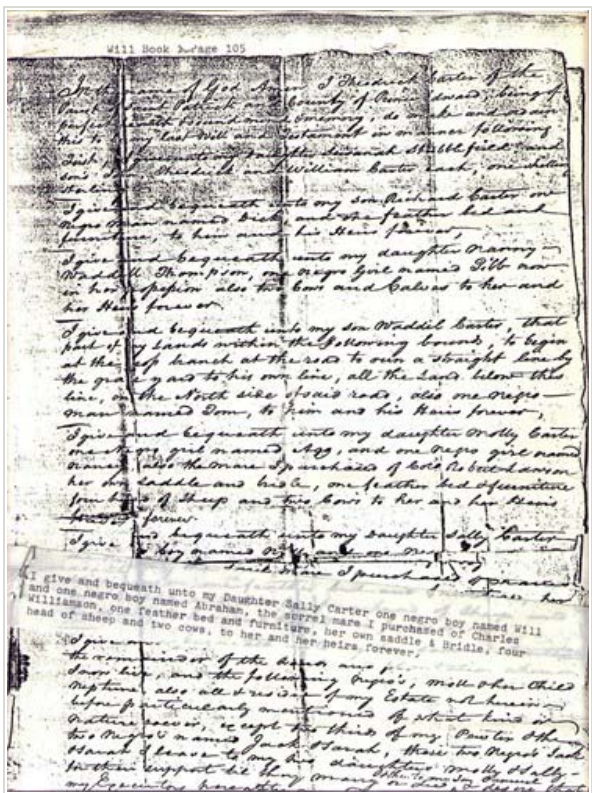 Will Book Page 105
In the name of God Amen I Thedrick Carter of the
Parish of Saint Patrick and County of Prince Edward, being of
perfect health sound mind & memory, do make and ordain
this to my last Will and Testament in manner following
my daughter Stubblefield and
sons Thedrick and William Carter each, one shilling
sterling
I give and bequeath unto my son Richard Carter one
Negro Man named Dick, and one feather bed and
furniture, to him and his Heirs forever,
I give and bequeath unto my daughter Nanny
Waddell Thompson, one negro Girl named now
in her possession also two Cows and Calves to her and
her Heirs forever.
I give and bequeath unto my son Waddil Carter, that
part of my Lands within the following bounds, to begin
at the branch at the road to run a straight line by
the grave yard to his own line, all the Land below this
line, on the North side of said road, also one negro
man named Tom, to him and his Heirs forever,
I give and bequeath unto my daughter Molly Carter
one Negro girl named Agg, and one Negro girl named
also the Mare I purchased of Colo Robert Lawson
her own saddle and bridle, one feather bed & furniture
four head of Sheep and two Cows to her and her Heirs
forever.
I give and bequeath unto my Daughter Sally Carter
boy named and one
Mare I purchased of
I give and bequeath unto my Daughter Sally Carter one negro boy named Will
and one negro boy named Abraham, the sorrel mare I purchased of Charles
Williamson, one feather bed and furniture, her own saddle & Bridle, four
head of sheep and two cows, to her and her heirs forever.
I give
the remainder of the
I now live, and the following Negro's, Moll & her child
Neptune also all & residue of my Estate not herein
before particularly mentioned of what kind or
nature soever, except two thirds of my Pewter & the
two Negro's named Jack & Sarah, these two Negro's Jack
& Sarah I leave to my two daughters Molly & Sally
for their support
my Executors